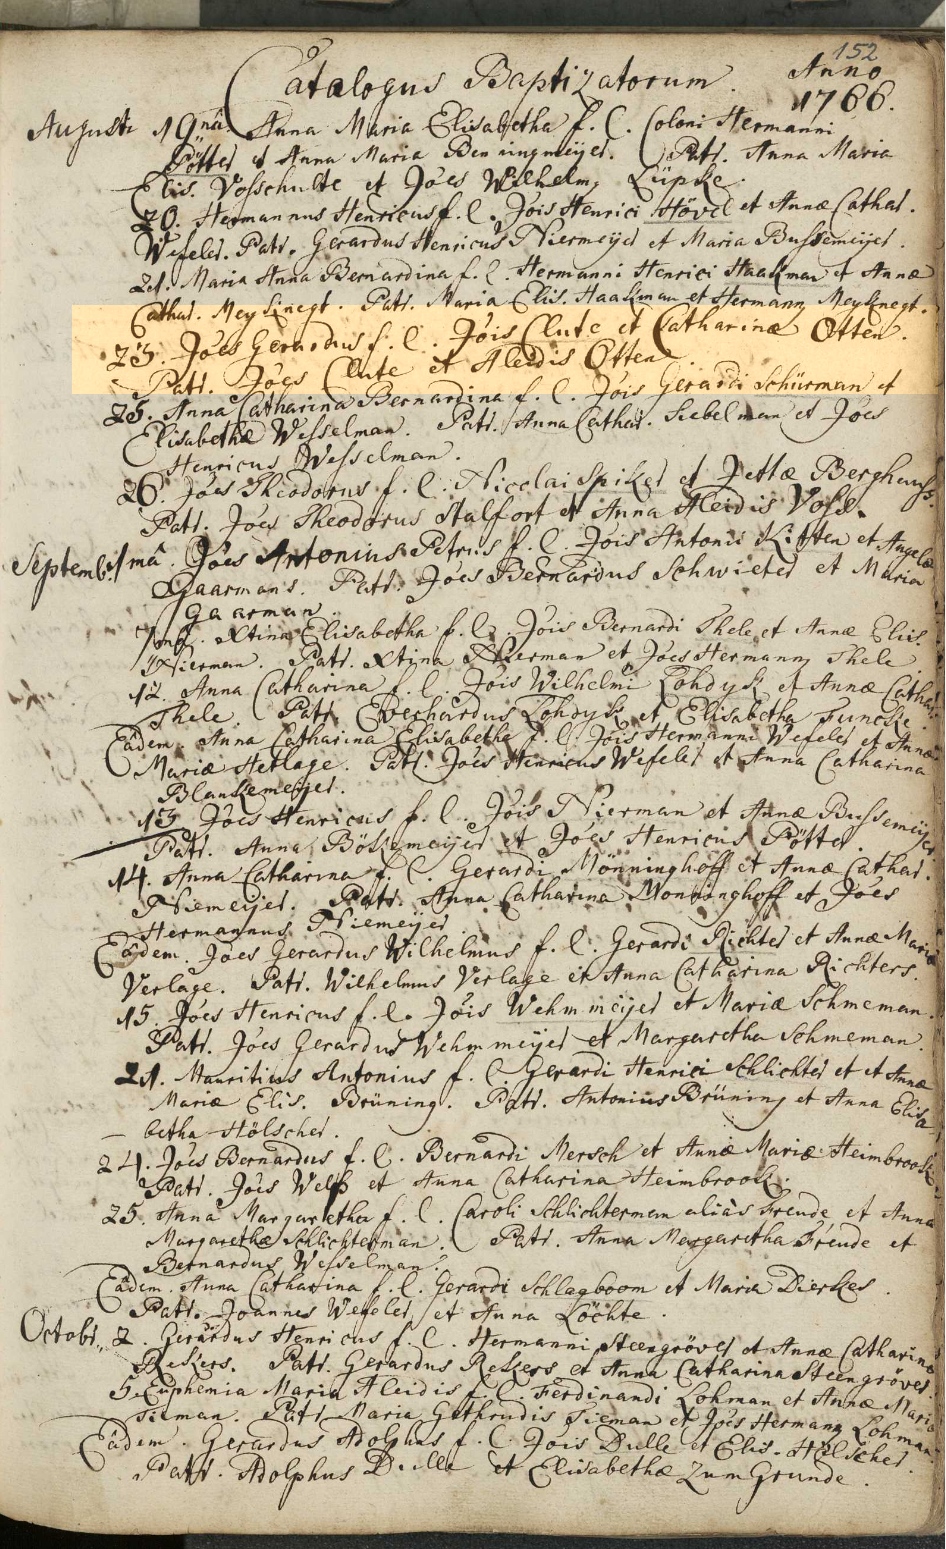 152
Catalogus Baptizatorum. Anno
1766.
Augusti 19nâ. Anna Maria Elisabetha f. l. Coloni Hermanni
Pötter et Anna Maria Benningmeijer. Patr. Anna Maria
Elis. Vosschulte et Joês Wilhelm Lüpke.
20. Hermannus Henricus f. l. Jôis Henrici Hövel et Annæ Cathar.
Wefeler. Patr. Gerardus Henricus Niermeyer et Maria Bussemeijer.
21. Maria Anna Bernardina f. l. Hermanni Henrici Haakman et Annæ
Cathar. Meyknegt. Patr. Maria Elis. Haakman et Hermann Meyknegt.
23. Joês Gerardus f. l. Jôis Clute et Catharinæ Otten.
Patr. Joês Clute et Aleidis Otten.
25. Anna Catharina Bernardina f. l. Jôis Gerardi Schürman et
Elisabethæ Wesselman. Patr. Anna Cathar. Siebelman et Joês
Henricus Wesselman.
26. Joês Theodorus f. l. Nicolai Spiker et Jettæ Berghaus.
Patr. Joês Theodorus Stalfort et Anna Aleidis Voss.
Septemb. 1mâ. Joês Antonius Petrus f. l. Jôis Antonii Kitten et Angelæ
Gaarmans. Patr. Joês Bernardus Schwieter et Maria
Gaarman.
7mâ. Xtina Elisabetha f. l. Jôis Bernardi Thele et Annæ Elis.
Nierman. Patr. Xtina Nierman et Joês Hermann Thele
12. Anna Catharina f. l. Jôis Wilhelmi Lohdyk et Annæ Cathar.
Thele. Patr. Everhardus Lohdyk et Elisabetha Funcke.
Eâdem. Anna Catharina Elisabetha f. l. Jôis Hermanni Wefeler et Annæ
Mariæ Hetlage. Patr. Joês Henricus Wefeler et Anna Catharina
Blankemeijer.
13 Joês Henricus f. l. Jôis Nierman et Annæ Bussemeijer.
Patr. Anna Bökemeijer et Joês Henricus Pötter.
14. Anna Catharina f. l. Gerardi Mönninghoff et Annæ Cathar.
Niemeijer. Patr. Anna Catharina Monninghoff et Joês
Hermannus Niemeijer.
Eâdem. Joês Gerardus Wilhelmus f. l. Gerardi Richter et Annæ Mariæ
Verlage. Patr. Wilhelmus Verlage et Anna Catharina Richters.
15. Joês Henricus f. l. Jôis Wehmmeijer et Mariæ Schmeman.
Patr. Joês Gerardus Wehmmeijer et Margaretha Schmeman.
21. Mauritius Antonius f. l. Gerardi Henrici Schlichter et et Annæ
Mariæ Elis. Brüning. Patr. Antonius Brüning et Anna Elisa
betha Hölscher.
24. Joês Bernardus f. l. Bernardi Mersch et Annæ Mariæ Heimbrook
Patr. Joês Welp et Anna Catharina Heimbrook.
25. Anna Margaretha f. l. Caroli Schlichterman aliàs Freude et Anna
Margarethæ Schlichterman. Patr. Anna Margaretha Freude et
Bernardus Wesselman.
Eâdem. Anna Catharina f. l. Gerardi Schlagboom et Maria Dierkes.
Patr. Joannes Wefeler et Anna Löchte.
Octobr. 2. Gerardus Henricus f. l. Hermanni Steengröver et Annæ Catharinæ
Rekers. Patr. Gerardus Rekers et Anna Catharina Steengröver.
5. Euphemia Maria Aleidis f. l. Ferdinandi Lohman et Annæ Mariæ
Tieman. Patr. Maria Gethrudis Tieman et Joês Hermann Lohman.
Eâdem. Gerardus Adolphus f. l. Jôis Dulle et Elis. Hölscher.
Patr. Adolphus Dulle et Elisabethæ Zum Grunde.